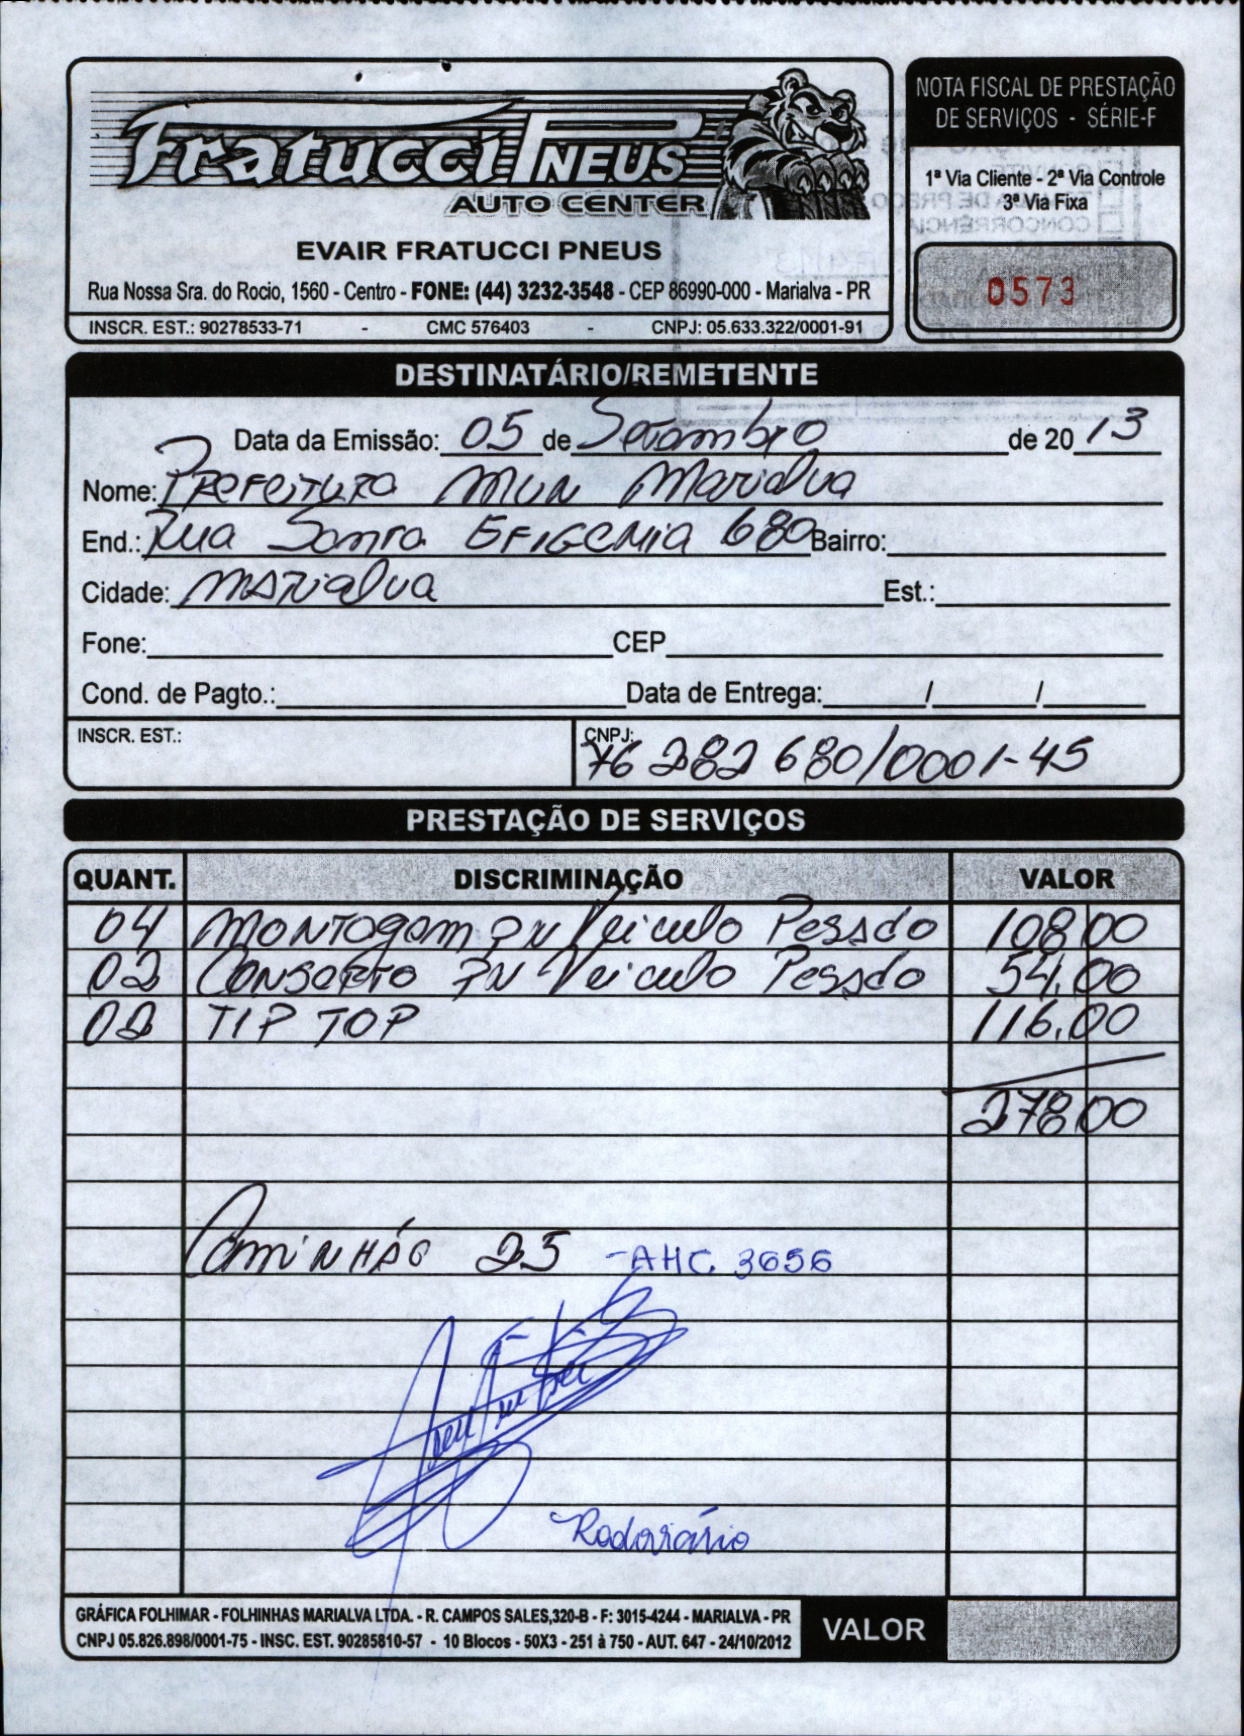 Fratucci Pneus
AUTO CENTER
EVAIR FRATUCCI PNEUS
Rua Nossa Sra. do Rocio, 1560 - Centro - FONE: (44) 3232-3548 - CEP 86990-000 - Marialva - PR
INSCR. EST.: 90278533-71 - CMC 576403 - CNPJ: 05.633.322/0001-91
NOTA FISCAL DE PRESTAÇÃO
DE SERVIÇOS - SÉRIE-F
1ª Via Cliente - 2ª Via Controle
3ª Via Fixa
0573
DESTINATÁRIO/REMETENTE
Data da Emissão: 05 de Setembro de 20 13
Nome: Prefeitura Mun Marialva
End.: Rua Santa Efigenia 680 Bairro:
Cidade: Marialva Est.:
Fone: CEP
Cond. de Pagto.: Data de Entrega: / /
INSCR. EST.: CNPJ: 76 282 680/0001-45
PRESTAÇÃO DE SERVIÇOS
QUANT. DISCRIMINAÇÃO VALOR
04 Montagem PN Veiculo Pesado 108,00
02 Conserto PN Veiculo Pesado 54,00
02 TIP TOP 116,00
278,00
Caminhão 25 - AHC 3656
Rodoviário
GRÁFICA FOLHIMAR - FOLHINHAS MARIALVA LTDA. - R. CAMPOS SALES,320-B - F: 3015-4244 - MARIALVA - PR
CNPJ 05.826.898/0001-75 - INSC. EST. 90285810-57 - 10 Blocos - 50X3 - 251 à 750 - AUT. 647 - 24/10/2012
VALOR